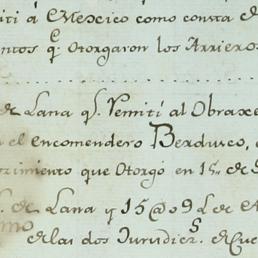 iti á Mexico como consta d
ntos q.e Otorgaron los Arrieros
de Lana q.e Remití al Obraxe
el encomendero Berdusco,
cimiento que Otorgó en 15 de
de Lana y 15@ 09 L. de
de las dos Jurudics.s de Cue